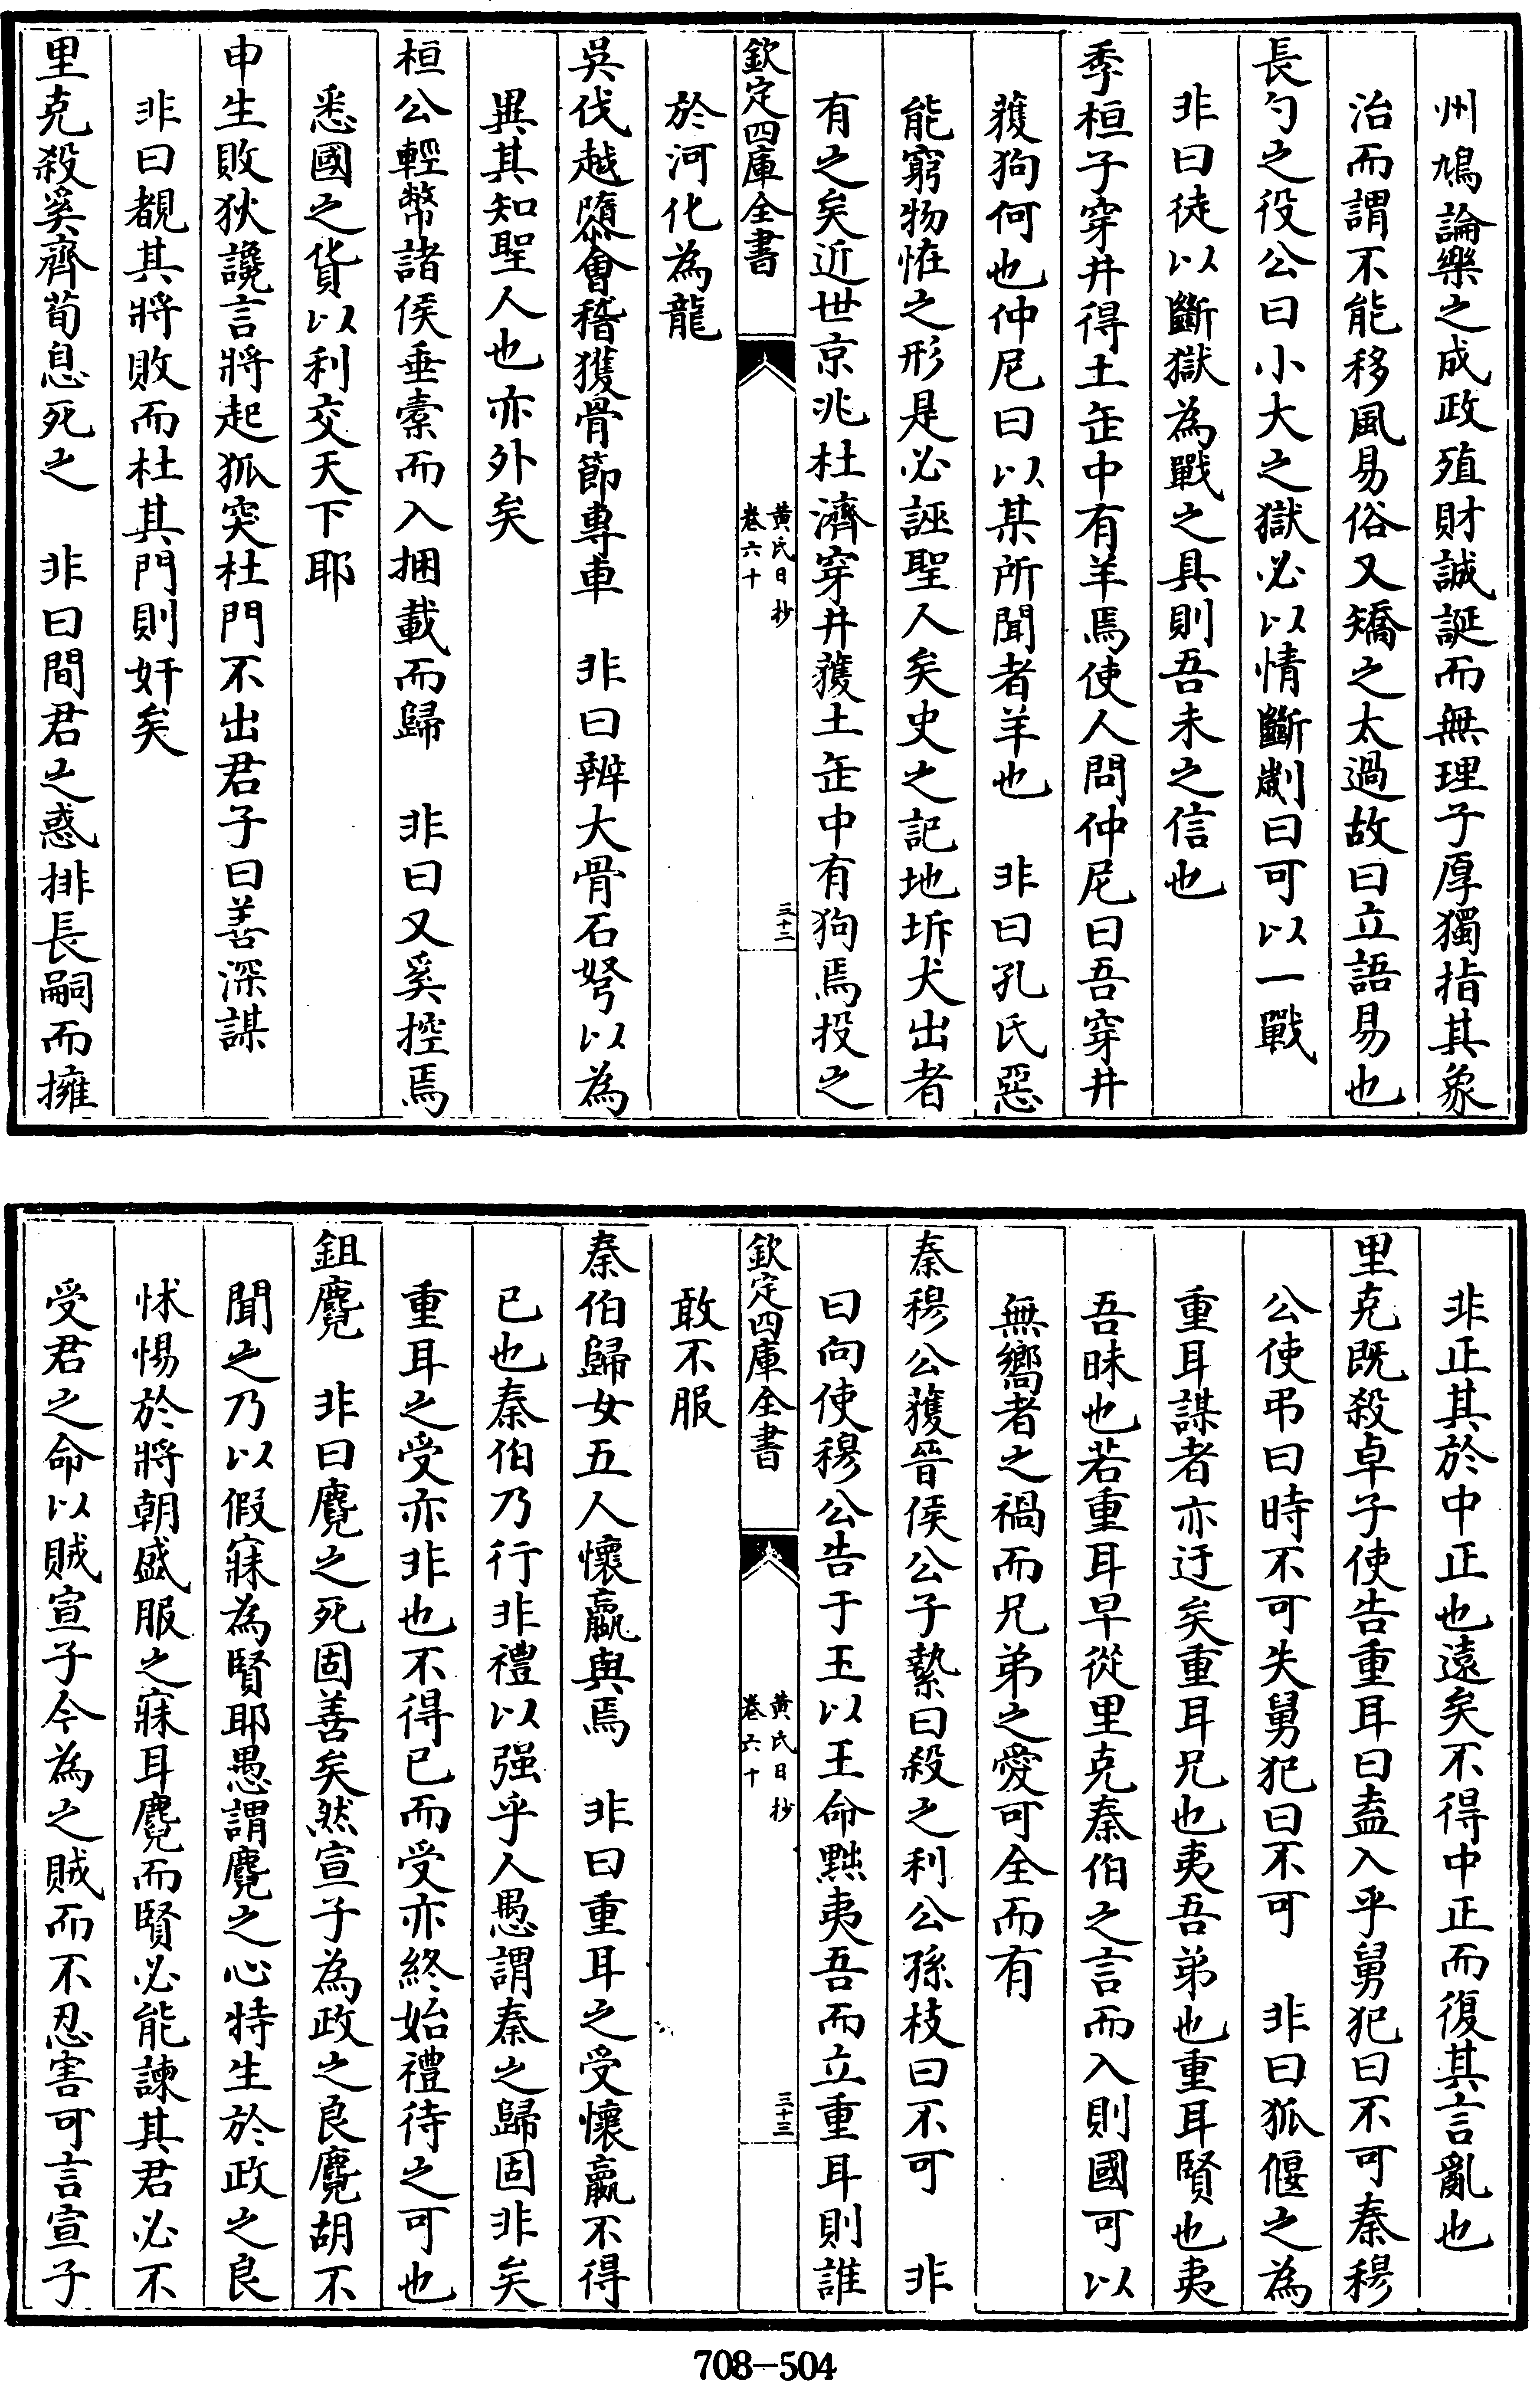 州鳩論樂之成政殖財誠誕而無理子厚獨指其象
治而謂不能移風易俗又矯之太過故曰立語易也
長勺之役公曰小大之獄必以情斷劌曰可以一戰
非曰徒以斷獄為戰之具則吾未之信也
季桓子穿井得土缶中有羊焉使人問仲尼曰吾穿井
獲狗何也仲尼曰以某所聞者羊也　非曰孔氏惡
能窮物恠之形是必誣聖人矣史之記地坼犬出者
有之矣近世京兆杜濟穿井獲土缶中有狗焉投之
欽定四庫全書
黃氏日抄
卷六十
三十二
於河化為龍
吳伐越隳會稽獲骨節專車　非曰辨大骨石砮以為
異其知聖人也亦外矣
桓公輕幣諸侯垂橐而入捆載而歸　非曰又奚控焉
悉國之貨以利交天下耶
申生敗狄讒言將起狐突杜門不出君子曰善深謀
非曰覩其將敗而杜其門則奸矣
里克殺奚齊荀息死之　非曰間君之惑排長嗣而擁
非正其於中正也遠矣不得中正而復其言亂也
里克既殺卓子使告重耳曰盍入乎舅犯曰不可秦穆
公使弔曰時不可失舅犯曰不可　非曰狐偃之為
重耳謀者亦迂矣重耳兄也夷吾弟也重耳賢也夷
吾昧也若重耳早從里克秦伯之言而入則國可以
無嚮者之禍而兄弟之愛可全而有
秦穆公獲晉侯公子縶曰殺之利公孫枝曰不可　非
曰向使穆公告于王以王命黜夷吾而立重耳則誰
欽定四庫全書
黃氏日抄
卷六十
三十三
敢不服
秦伯歸女五人懷嬴與焉　非曰重耳之受懷嬴不得
已也秦伯乃行非禮以强乎人愚謂秦之歸固非矣
重耳之受亦非也不得已而受亦終始禮待之可也
鉏麑　非曰麑之死固善矣然宣子為政之良麑胡不
聞之乃以假寐為賢耶愚謂麑之心特生於政之良
怵惕於將朝盛服之寐耳麑而賢必能諫其君必不
受君之命以賊宣子今為之賊而不忍害可言宣子
708-504